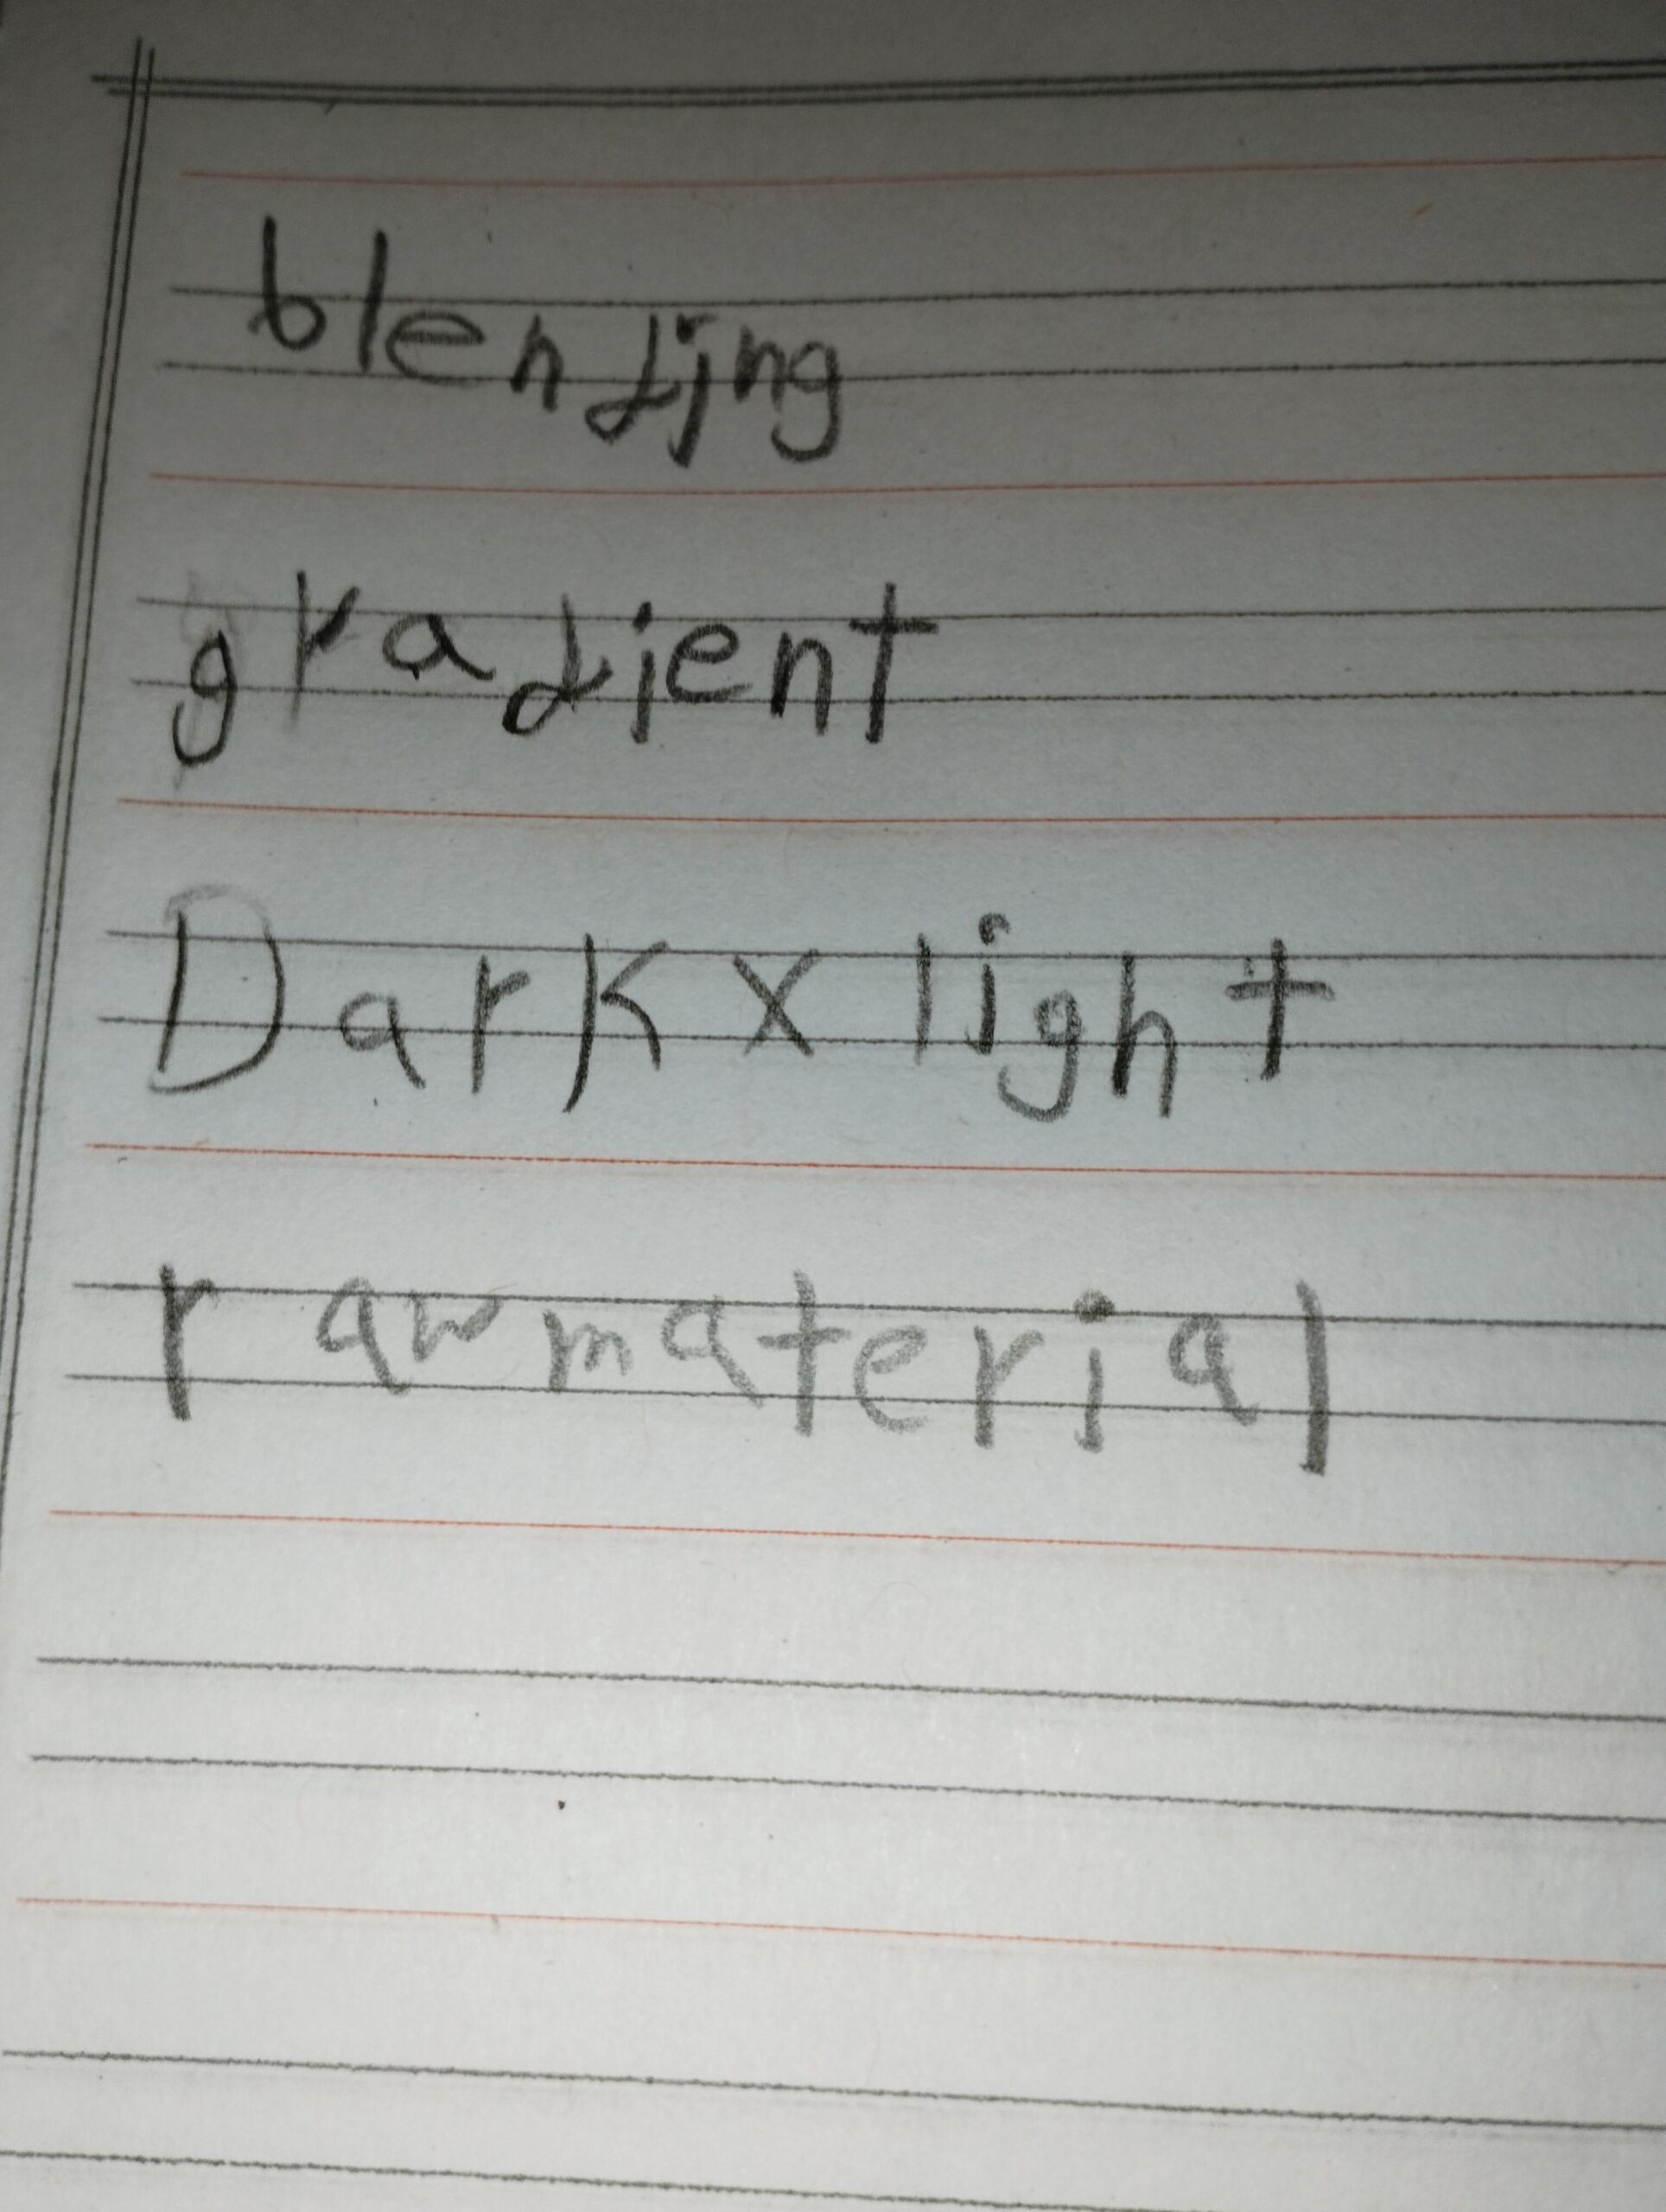 blending
gradient
Dark x light
raw material